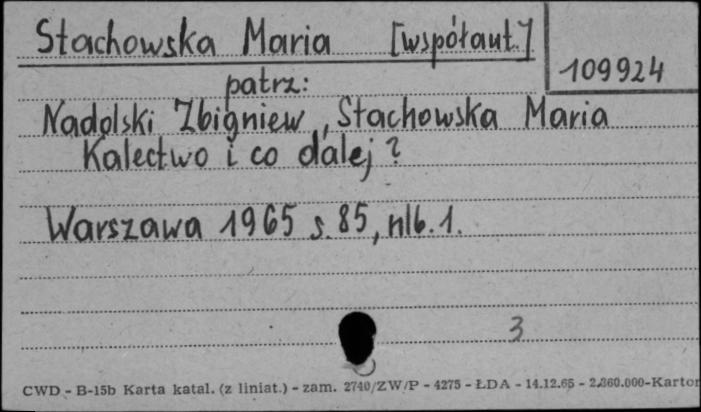 Stachowska Maria [współaut.]
109924
patrz:
Nadolski Zbigniew, Stachowska Maria
Kalectwo i co dalej?
Warszawa 1965 s. 85, nlb. 1.
3
CWD - B-15b Karta katal. (z liniat.) - zam. 2740/ZW/P - 4275 - ŁDA - 14.12.65 - 2.860.000-Karton